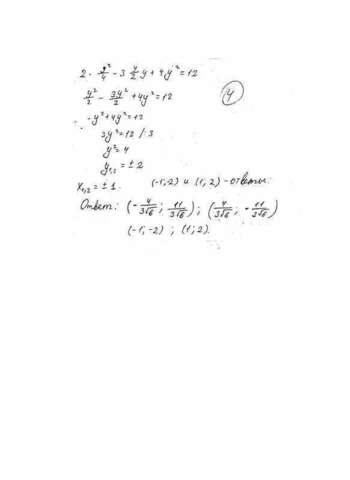 2 · y²/4 - 3 y/2 y + 4y² = 12
y²/2 - 3y²/2 + 4y² = 12
4
-y² + 4y² = 12
3y² = 12 /:3
y² = 4
y₁,₂ = ± 2
x₁,₂ = ± 1. (-1;-2) и (1; 2) - ответы.
Ответ: (-4/3√6 ; 11/3√6) ; (4/3√6 ; -11/3√6)
(-1; -2) ; (1; 2).